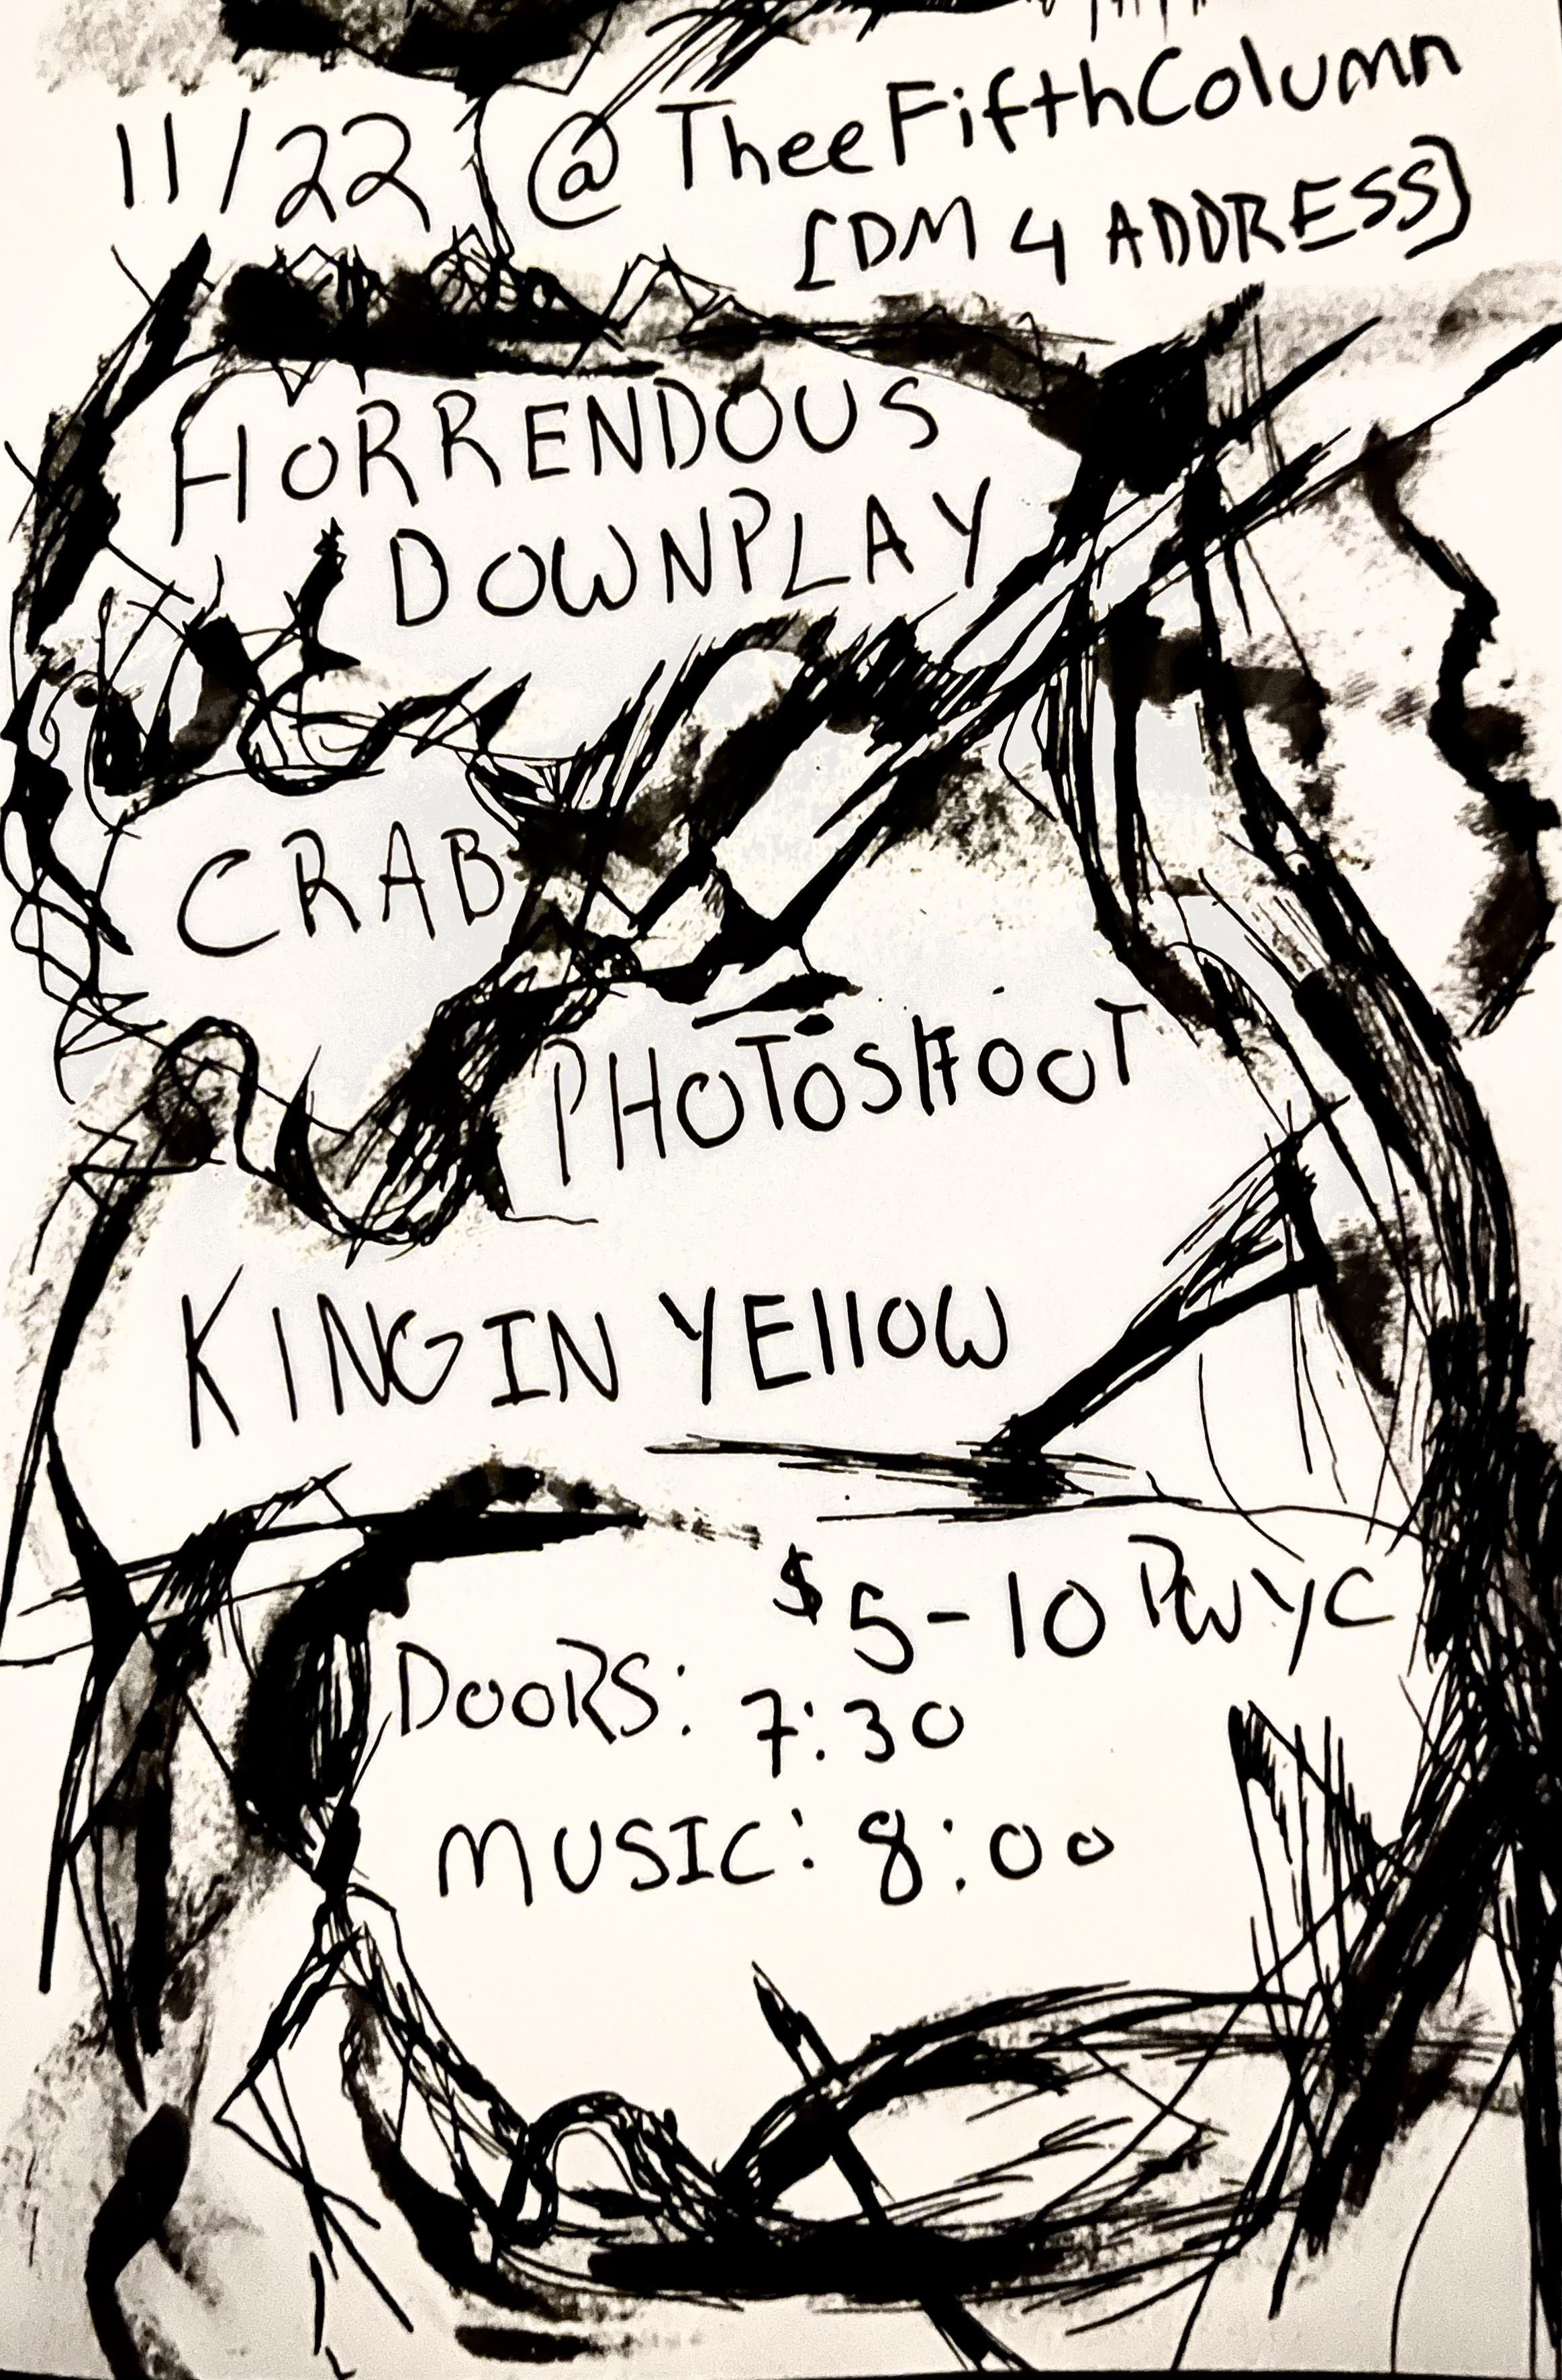 11/22 @ TheeFifthColumn
[DM 4 ADDRESS]
HORRENDOUS
DOWNPLAY
CRAB
PHOTOSHOOT
KING IN YEllOW
$5-10 PWYC
DOORS: 7:30
MUSIC: 8:00